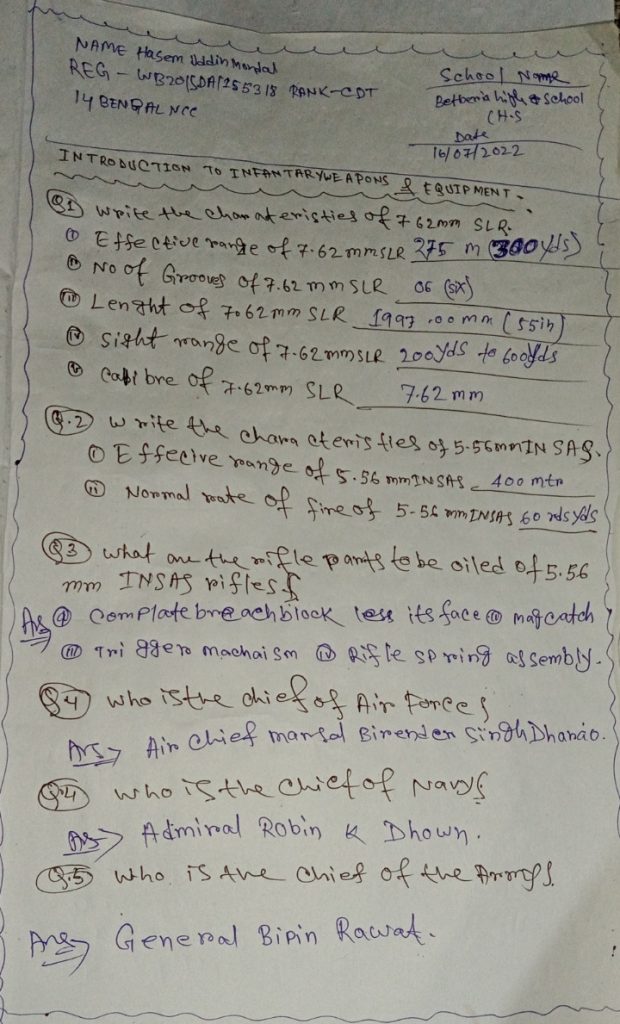 NAME Hasem Uddin Mondal
REG - WB2015DA1255318 RANK-CDT
14 BENGAL NCC
School Name
Betberia high school
(H.S
Date
16/07/2022
INTRODUCTION TO INFANTARYWEAPONS & EQUIPMENT -
Q1 Write the charateristies of 7 62mm SLR.
(i) Effective range of 7.62 mmSLR 275 m (300 yds)
(ii) No of Grooves of 7.62 mm SLR 06 (six)
(iii) Lenght of 7.62 mm SLR 1997.00mm (55in)
(iv) Sight range of 7.62mmSLR 200yds to 600yds
(v) Calibre of 7.62mm SLR 7.62 mm
Q.2 Write the chara cteristies of 5.56mmINSAS.
(i) Effecive range of 5.56 mmINSAS 400 mtr
(ii) Normal rate of fire of 5-56 mmINSAS 60 rds yds
Q3 What are the rifle parts to be oiled of 5.56
mm INSAS rifles
Ans (i) Complate breachblock less its face (ii) mag catch
(iii) Tri gger machaism (iv) Rifle spring assembly.
Q4 Who is the chief of Air Force
Ans Air Chief marsal Birender Singh Dhanao.
Q.4 Who is the Chief of Navy
Ans Admiral Robin K Dhown.
Q.5 Who is the chief of the Army
Ans General Bipin Rawat.